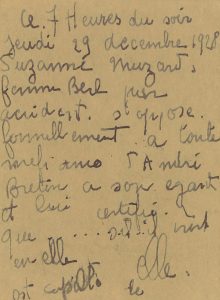 Ce 7 Heures du soir
jeudi 29 decembre 1928
Suzanne Muzard,
femme Berl par
accident. s'oppose
formellement a toute
André
Breton a son egard
et lui certifie
que ... vont
en elle
elle.
est le